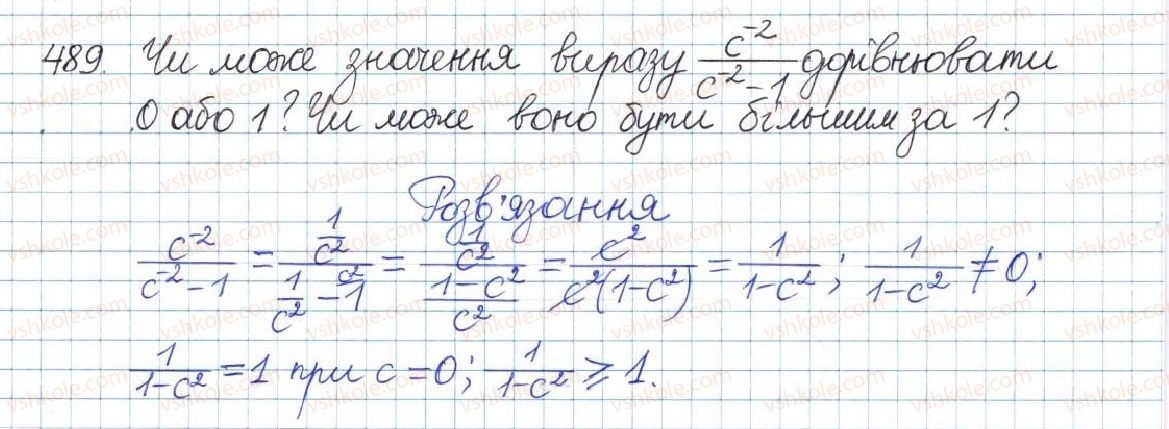 489. Чи може значення виразу c⁻²/(c⁻² − 1) дорівнювати
0 або 1? Чи може воно бути більшим за 1?
Розв'язання
c⁻²/(c⁻² − 1) = (1/c²)/(1/c² − 1^(c²)) = (1/c²)/((1 − c²)/c²) = c²/(c²(1 − c²)) = 1/(1 − c²); 1/(1 − c²) ≠ 0;
1/(1 − c²) = 1 при c = 0; 1/(1 − c²) ⩾ 1.
vshkole.com